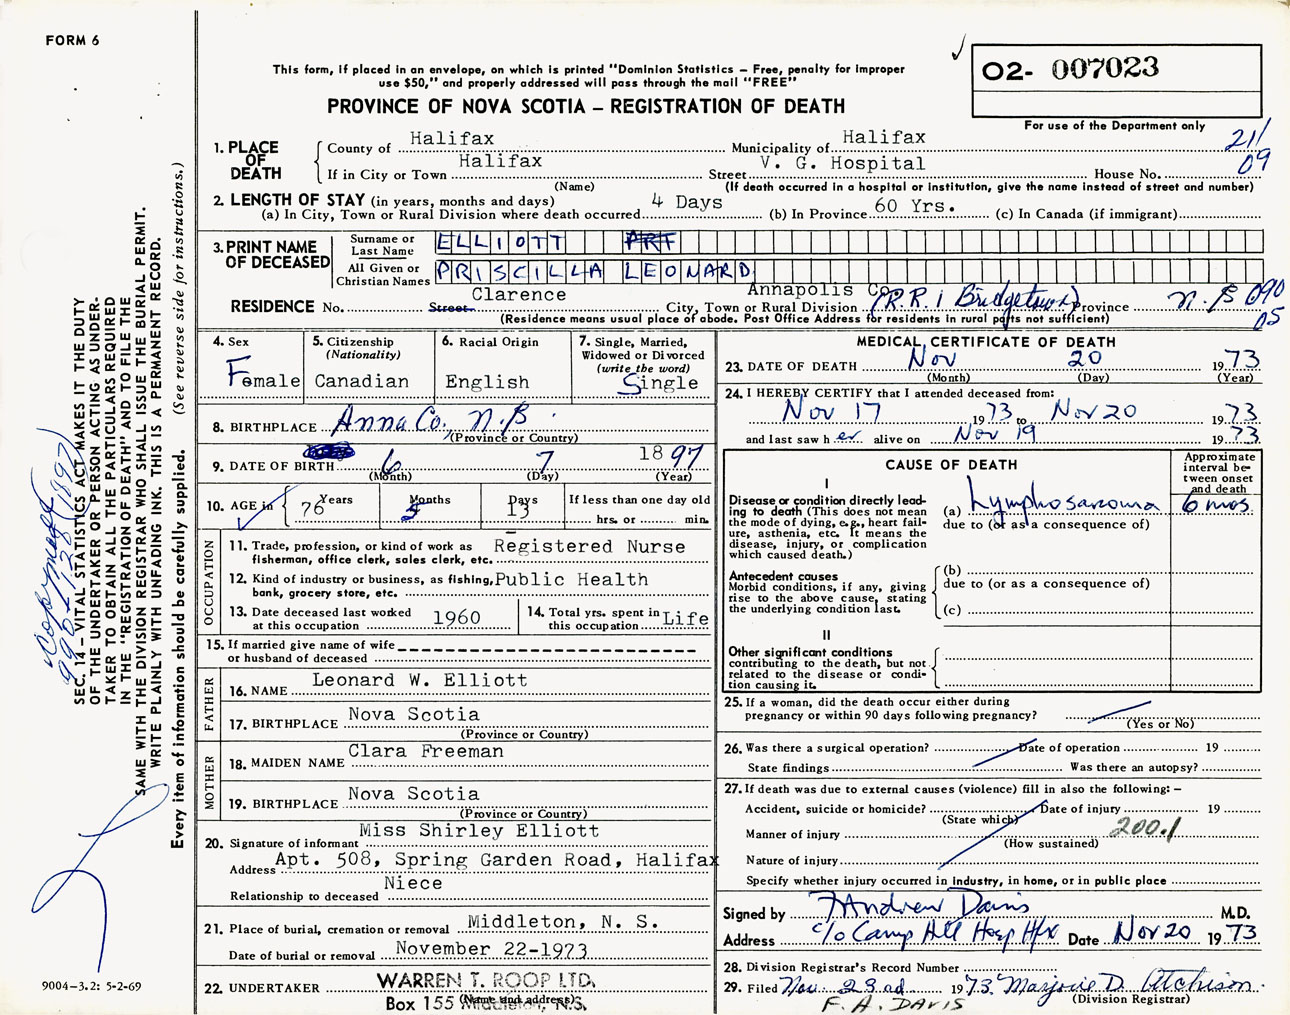 FORM 6
This form, if placed in an envelope, on which is printed "Dominion Statistics – Free, penalty for improper
use $50," and properly addressed will pass through the mail "FREE"
PROVINCE OF NOVA SCOTIA – REGISTRATION OF DEATH
O2- 007023
For use of the Department only
21/
09
1. PLACE OF DEATH
County of Halifax Municipality of Halifax
If in City or Town Halifax Street V. G. Hospital House No.
(Name) (If death occurred in a hospital or institution, give the name instead of street and number)
2. LENGTH OF STAY (in years, months and days)
(a) In City, Town or Rural Division where death occurred 4 Days (b) In Province 60 Yrs. (c) In Canada (if immigrant)
3. PRINT NAME OF DECEASED
Surname or Last Name ELLIOTT PRT
All Given or Christian Names PRISCILLA LEONARD
RESIDENCE No. Street Clarence City, Town or Rural Division Annapolis Co. (R.R. 1 Bridgetown) Province N.S 090
05
(Residence means usual place of abode. Post Office Address for residents in rural parts not sufficient)
4. Sex Female
5. Citizenship (Nationality) Canadian
6. Racial Origin English
7. Single, Married, Widowed or Divorced (write the word) Single
8. BIRTHPLACE Anna Co. N.S.
(Province or Country)
9. DATE OF BIRTH 6 7 1897
(Month) (Day) (Year)
10. AGE in 76 Years 5 Months 13 Days If less than one day old
hrs. or min.
OCCUPATION
11. Trade, profession, or kind of work as Registered Nurse
fisherman, office clerk, sales clerk, etc.
12. Kind of industry or business, as fishing, Public Health
bank, grocery store, etc.
13. Date deceased last worked at this occupation 1960
14. Total yrs. spent in this occupation Life
15. If married give name of wife
or husband of deceased
FATHER
16. NAME Leonard W. Elliott
17. BIRTHPLACE Nova Scotia
(Province or Country)
MOTHER
18. MAIDEN NAME Clara Freeman
19. BIRTHPLACE Nova Scotia
(Province or Country)
20. Signature of informant Miss Shirley Elliott
Address Apt. 508, Spring Garden Road, Halifax
Relationship to deceased Niece
21. Place of burial, cremation or removal Middleton, N. S.
Date of burial or removal November 22-1973
22. UNDERTAKER WARREN T. ROOP LTD.
(Name and address)
Box 155 Middleton, N.S.
MEDICAL CERTIFICATE OF DEATH
23. DATE OF DEATH Nov 20 1973
(Month) (Day) (Year)
24. I HEREBY CERTIFY that I attended deceased from:
Nov 17 1973 to Nov 20 1973
and last saw her alive on Nov 19 1973
CAUSE OF DEATH
Approximate interval between onset and death
I
Disease or condition directly leading to death (This does not mean the mode of dying, e.g., heart failure, asthenia, etc. It means the disease, injury, or complication which caused death.)
(a) Lymphosarcoma 6 mos.
due to (or as a consequence of)
Antecedent causes
Morbid conditions, if any, giving rise to the above cause, stating the underlying condition last.
(b)
due to (or as a consequence of)
(c)
II
Other significant conditions
contributing to the death, but not related to the disease or condition causing it.
25. If a woman, did the death occur either during
pregnancy or within 90 days following pregnancy?
(Yes or No)
26. Was there a surgical operation? Date of operation 19
State findings Was there an autopsy?
27. If death was due to external causes (violence) fill in also the following: –
Accident, suicide or homicide? Date of injury 19
(State which)
Manner of injury 200.1
(How sustained)
Nature of injury
Specify whether injury occurred in industry, in home, or in public place
Signed by Andrew Davis M.D.
Address c/o Camp Hill Hosp Hfx Date Nov 20 1973
28. Division Registrar's Record Number
29. Filed Nov. 23rd 1973 Marjorie D. Atchison
(Division Registrar)
F. A. DAVIS
SEC. 14 – VITAL STATISTICS ACT MAKES IT THE DUTY
OF THE UNDERTAKER OR PERSON ACTING AS UNDER-
TAKER TO OBTAIN ALL THE PARTICULARS REQUIRED
IN THE "REGISTRATION OF DEATH" AND TO FILE THE
SAME WITH THE DIVISION REGISTRAR WHO SHALL ISSUE THE BURIAL PERMIT.
WRITE PLAINLY WITH UNFADING INK. THIS IS A PERMANENT RECORD.
Every item of information should be carefully supplied. (See reverse side for instructions.)
9004-3.2: 5-2-69